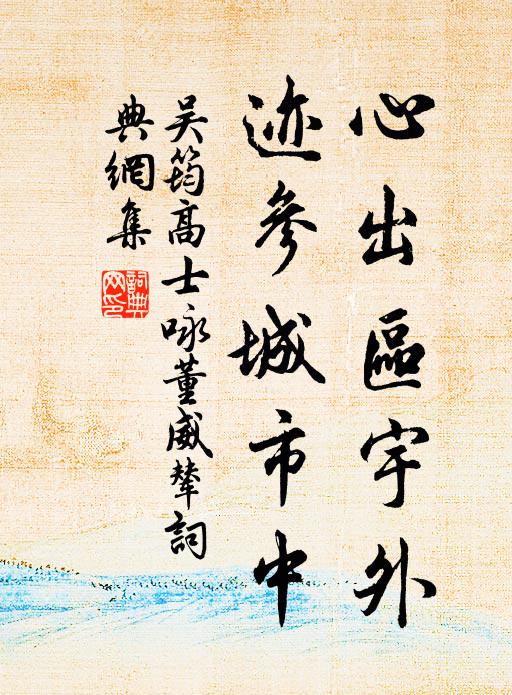 心出區宇外
迹參城市中
吴筠高士咏董威輦詞
典網集
詞典
网印